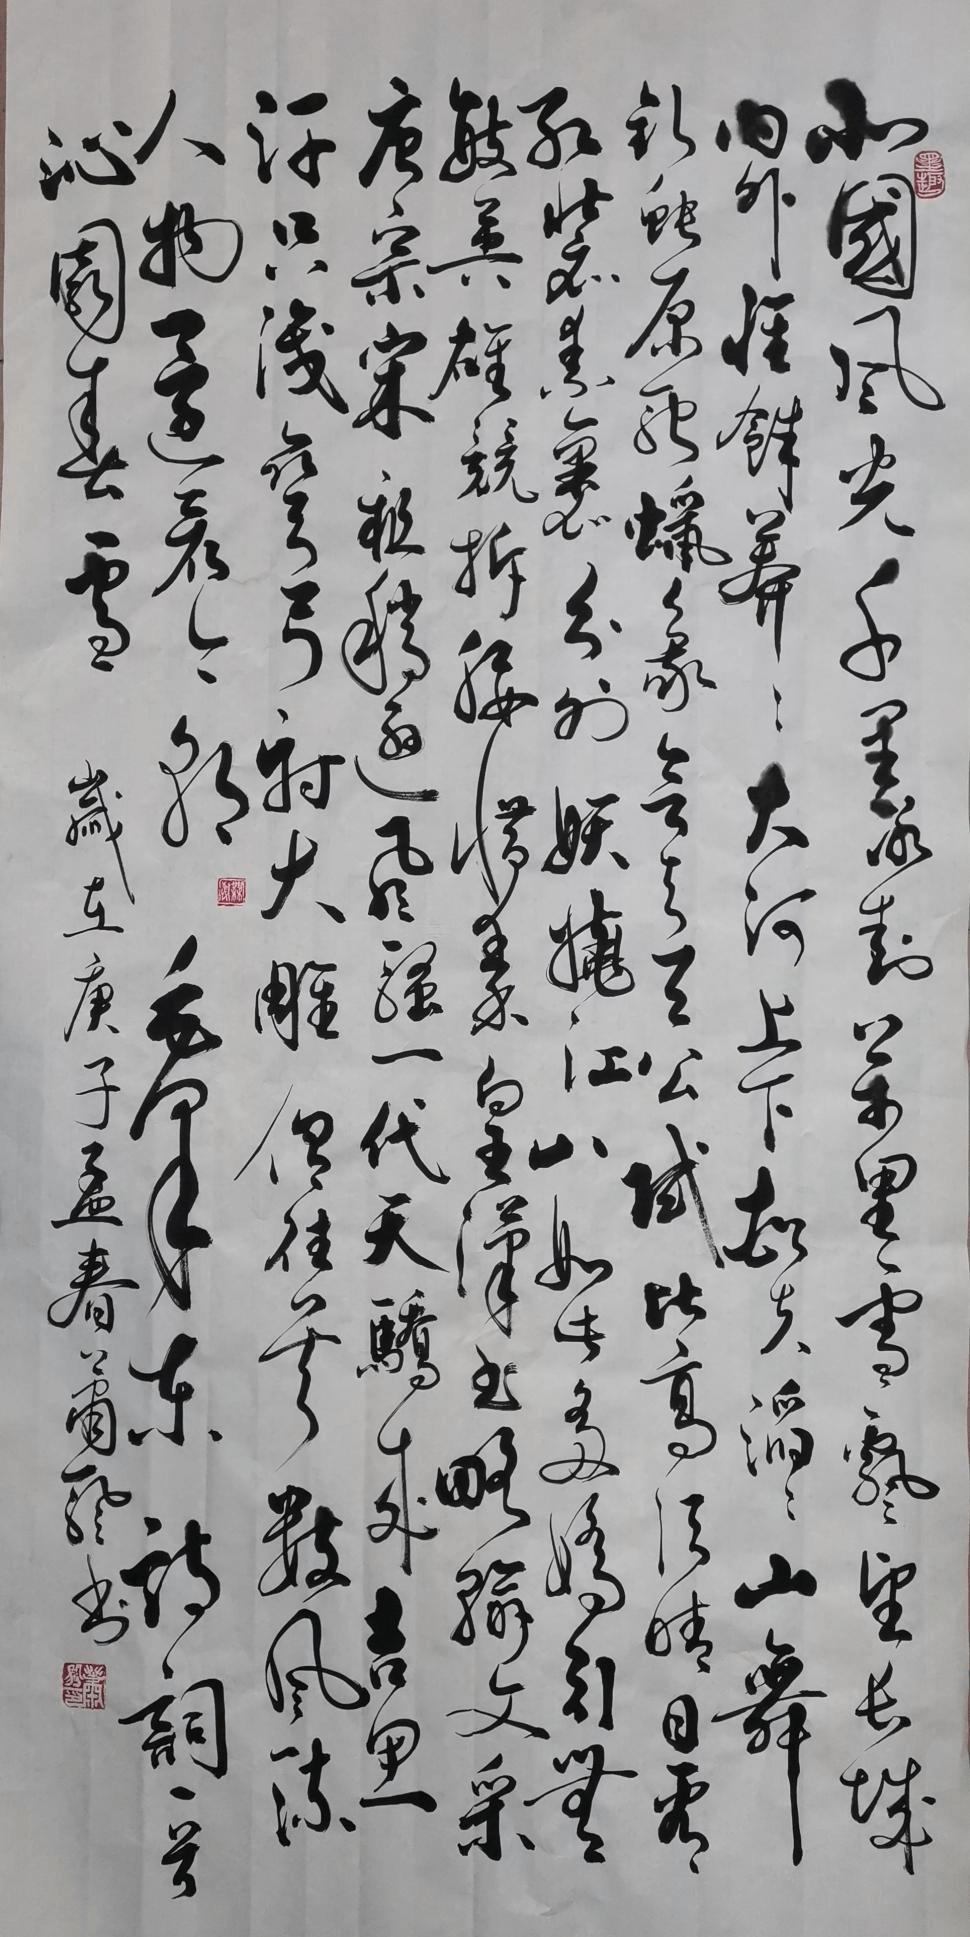 墨趣
北國風光千里冰封萬里雪飄望長城
内外惟餘莽〻大河上下頓失滔〻山舞
銀蛇原馳蠟象欲與天公試比高須晴日看
紅裝素裹分外妖嬈江山如此多嬌引無
數英雄競折腰惜秦皇漢武略輸文采
唐宗宋祖稍遜風騷一代天驕成吉思
汗只識彎弓射大雕俱往矣數風流
人物還看今朝 毛澤東詩詞一首
沁園春雪 歲在庚子孟春蕭書